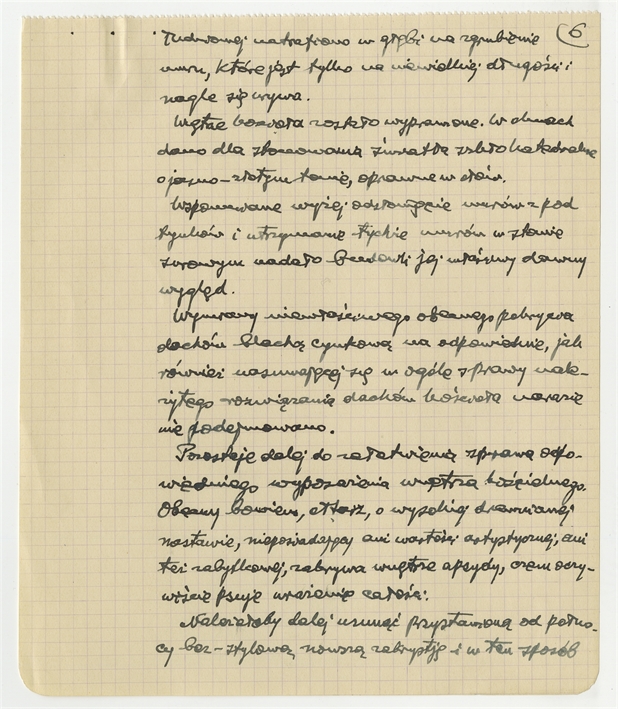 6
Tudorowej natrafiono w głębi na zgrubienie
muru, które jest tylko na niewielkiej długości i
nagle się urywa.
Wnętrze kościoła zostało wyprawione. W oknach
dano dla stonowania światła szkło katedralne
o jasno-złotym tonie, oprawne w ołów.
Wspomniane wyżej odsłonięcie murów z pod
tynków i utrzymanie tychże murów w stanie
surowym nadało budowli jej właściwy dawny
wygląd.
Wymiany niewłaściwego obecnego pokrycia
dachów blachą cynkową na odpowiednie, jak
również nasuwającej się w ogóle sprawy nale-
żytego rozwiązania dachów kościoła narazie
nie podejmowano.
Pozostaje dalej do załatwienia sprawa odpo-
wiedniego wyposażenia wnętrza kościelnego.
Obecny bowiem, ołtarz, o wysokiej drewnianej
nastawie, nieposiadający ani wartości artystycznej, ani
też zabytkowej, zakrywa wnętrze apsydy, czem oczy-
wiście psuje wrażenie całości.
Należałoby dalej usunąć przystawioną od półno-
cy bez-stylową, nowszą zakrystję i w ten sposób